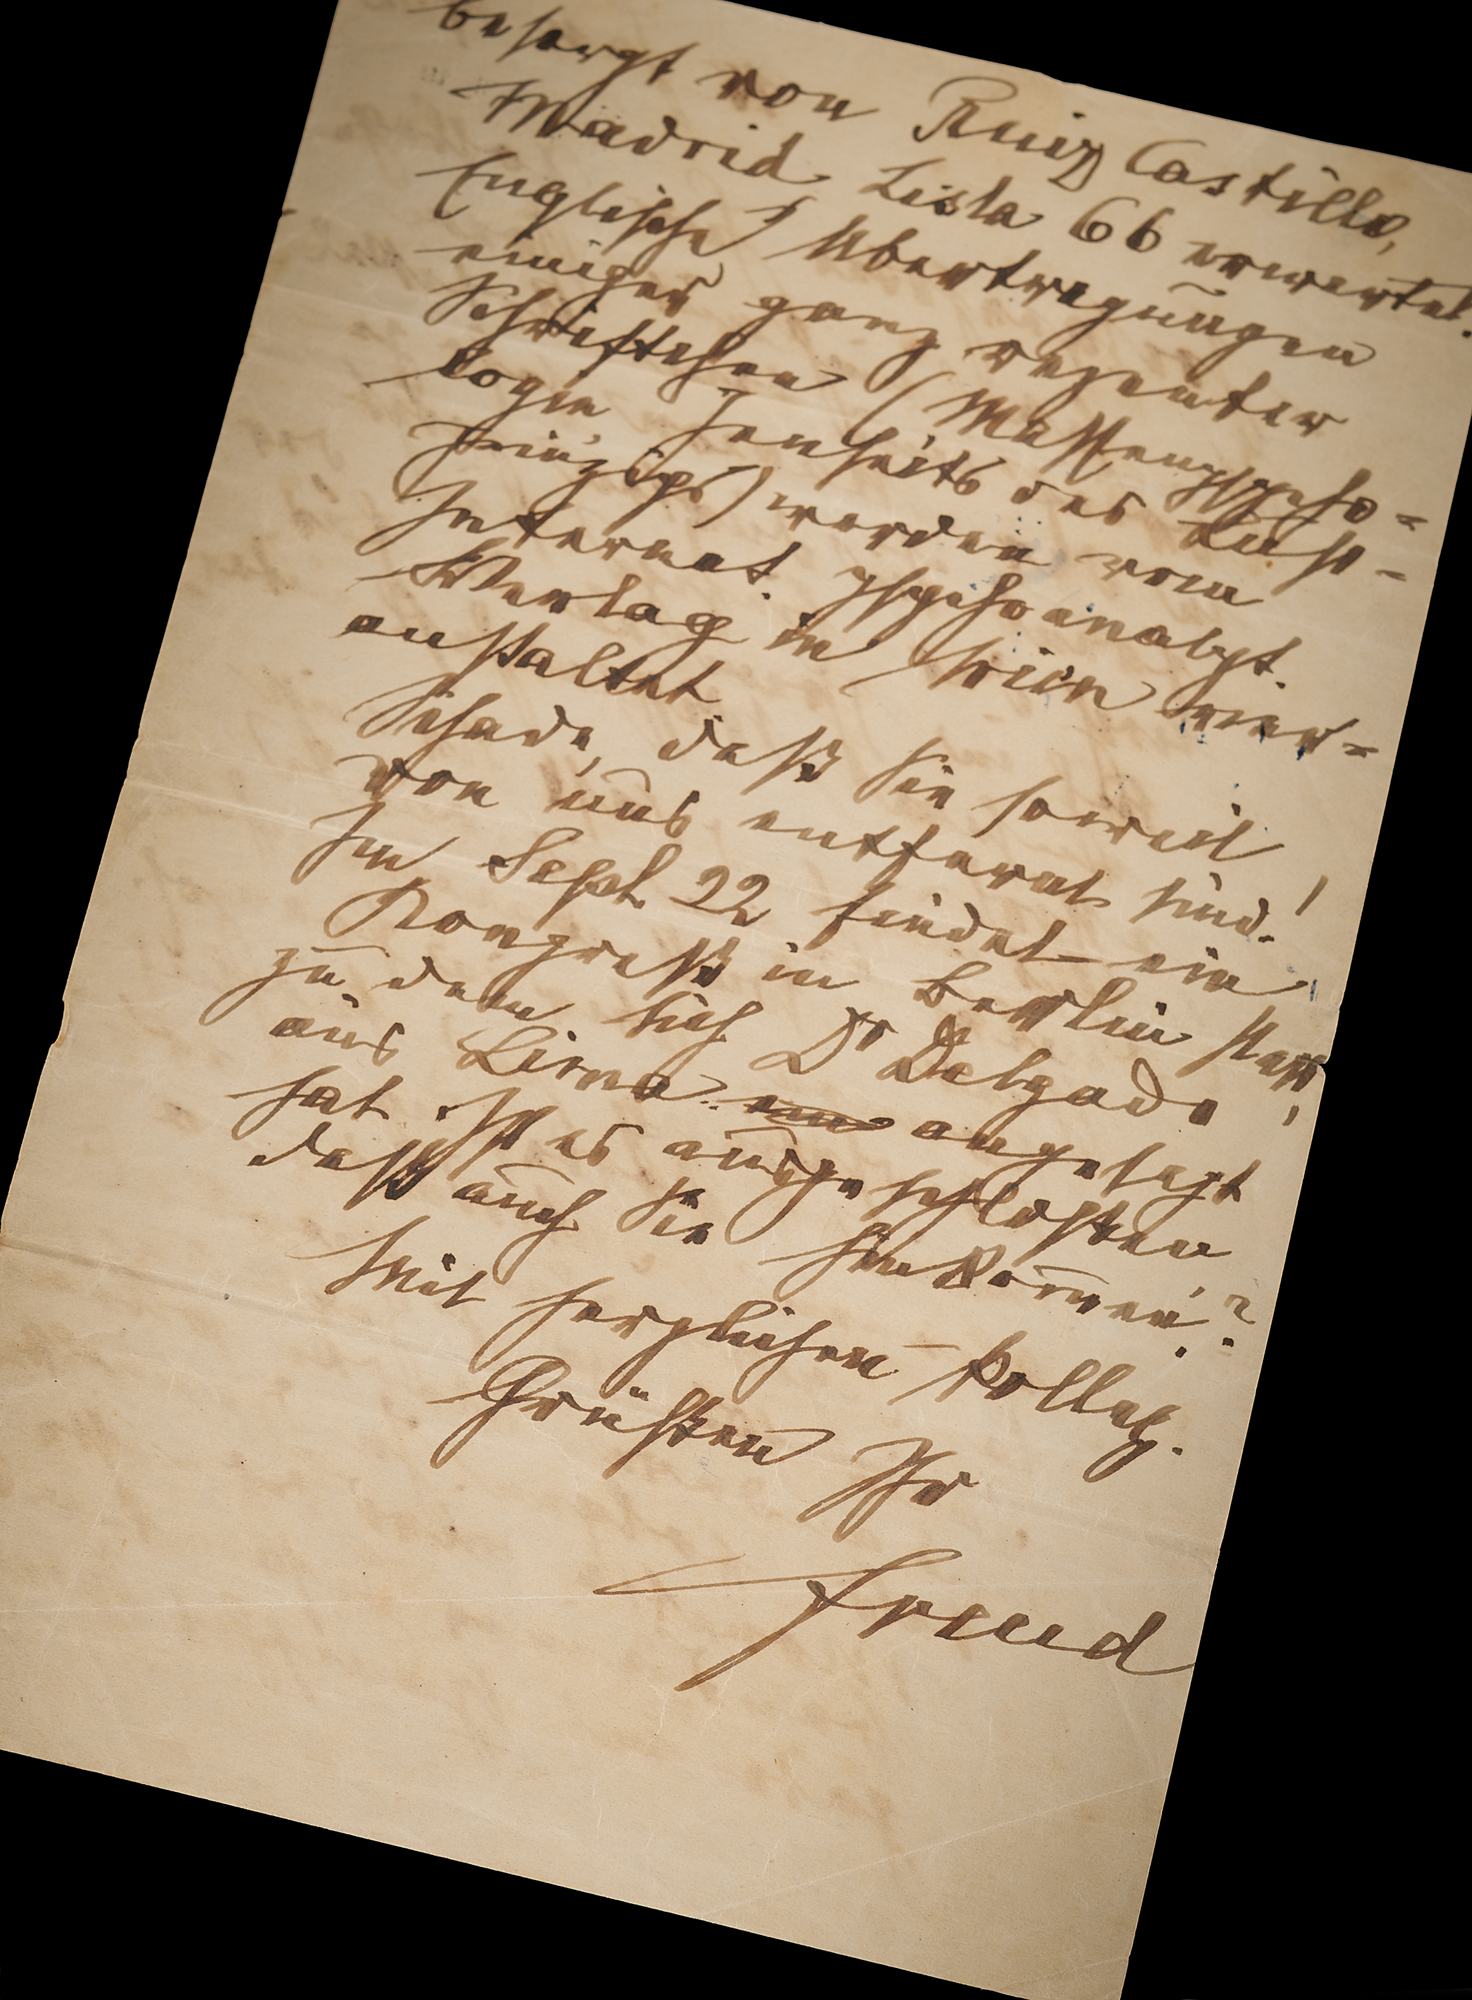 besorgt von Ruiz Castillo,
Madrid Lista 66 erwartet.
Englische Übertragungen
einiger ganz rezenter
Schriftchen (Massenpsycho-
logie Jenseits des Lust-
prinzips) werden vom
Internat. psychoanalyt.
Verlag in Wien ver-
anstaltet
Schade, daß Sie soweit
von uns entfernt sind!
Im Sept. 22 findet ein
Kongreß in Berlin statt,
zu dem sich Dr Delgado
aus Lima angesagt
hat. Ist es ausgeschlossen
daß auch Sie hinkom̄en?
Mit herzlichen kolleg.
Grüßen Ihr
Freud